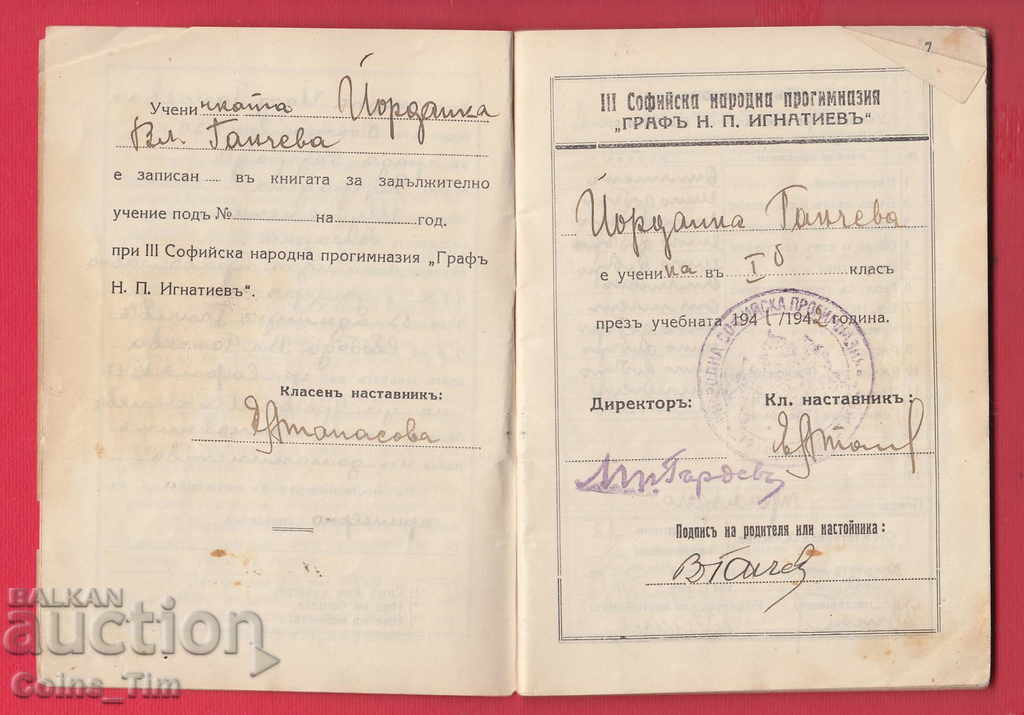 Учени чката Йорданка
Вл. Ганчева
е записан .... въ книгата за задължително
учение подъ № на год.
при III Софийска народна прогимназия „Графъ
Н. П. Игнатиевъ“.
Класенъ наставникъ:
Атанасова
7
III Софийска народна прогимназия
„ГРАФЪ Н. П. ИГНАТИЕВЪ“
Йорданка Ганчева
е учени чка въ I б класъ
презъ учебната 1941/1942 година.
СОФИЙСКА
Директоръ: Кл. наставникъ:
Подпись на родителя или настойника:
ВГанчев
BALKAN
auction
Coins_Tim